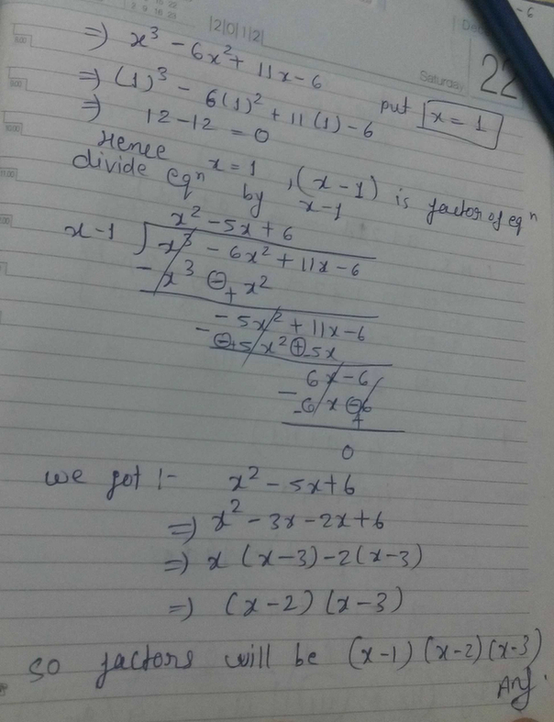 |2|0|1|2|
Saturday
22
⇒) x³ - 6x² + 11x - 6
put x = 1
⇒) (1)³ - 6(1)² + 11(1) - 6
⇒) 12 - 12 = 0
Hence x = 1, (x - 1) is factor of eqⁿ
divide eqⁿ by x - 1
x² - 5x + 6
x - 1 ) x³ - 6x² + 11x - 6
- x³ ⊖+ x²
- 5x² + 11x - 6
- ⊖+5x² ⊕-5x
6x - 6
- 6x ⊖+6
0
we got :- x² - 5x + 6
⇒) x² - 3x - 2x + 6
⇒) x (x - 3) - 2 (x - 3)
⇒) (x - 2) (x - 3)
so factors will be (x - 1) (x - 2) (x - 3)
Ans.